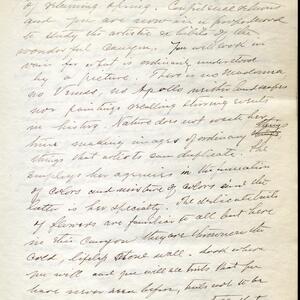 of returning spring.
and you are now in a
to study the artistic exhibits of the
wonderful Canyon. You will look in
vain for what is ordinarily understood
by a picture. There is no Madonna
no Venus, no Apollo neither landscapes
nor paintings recalling stirring events
in history. Nature does not
time making images of ordinary
things that artists can duplicate. She
employs her agencies in the
of colors and mixture of colors and the
latter is her specialty. The delicate tints
of flowers are familiar to all but here
in this Canyon they are thrown on the
cold, lifeless stone wall. Look where
you will and you will see tints that you
have never seen before,